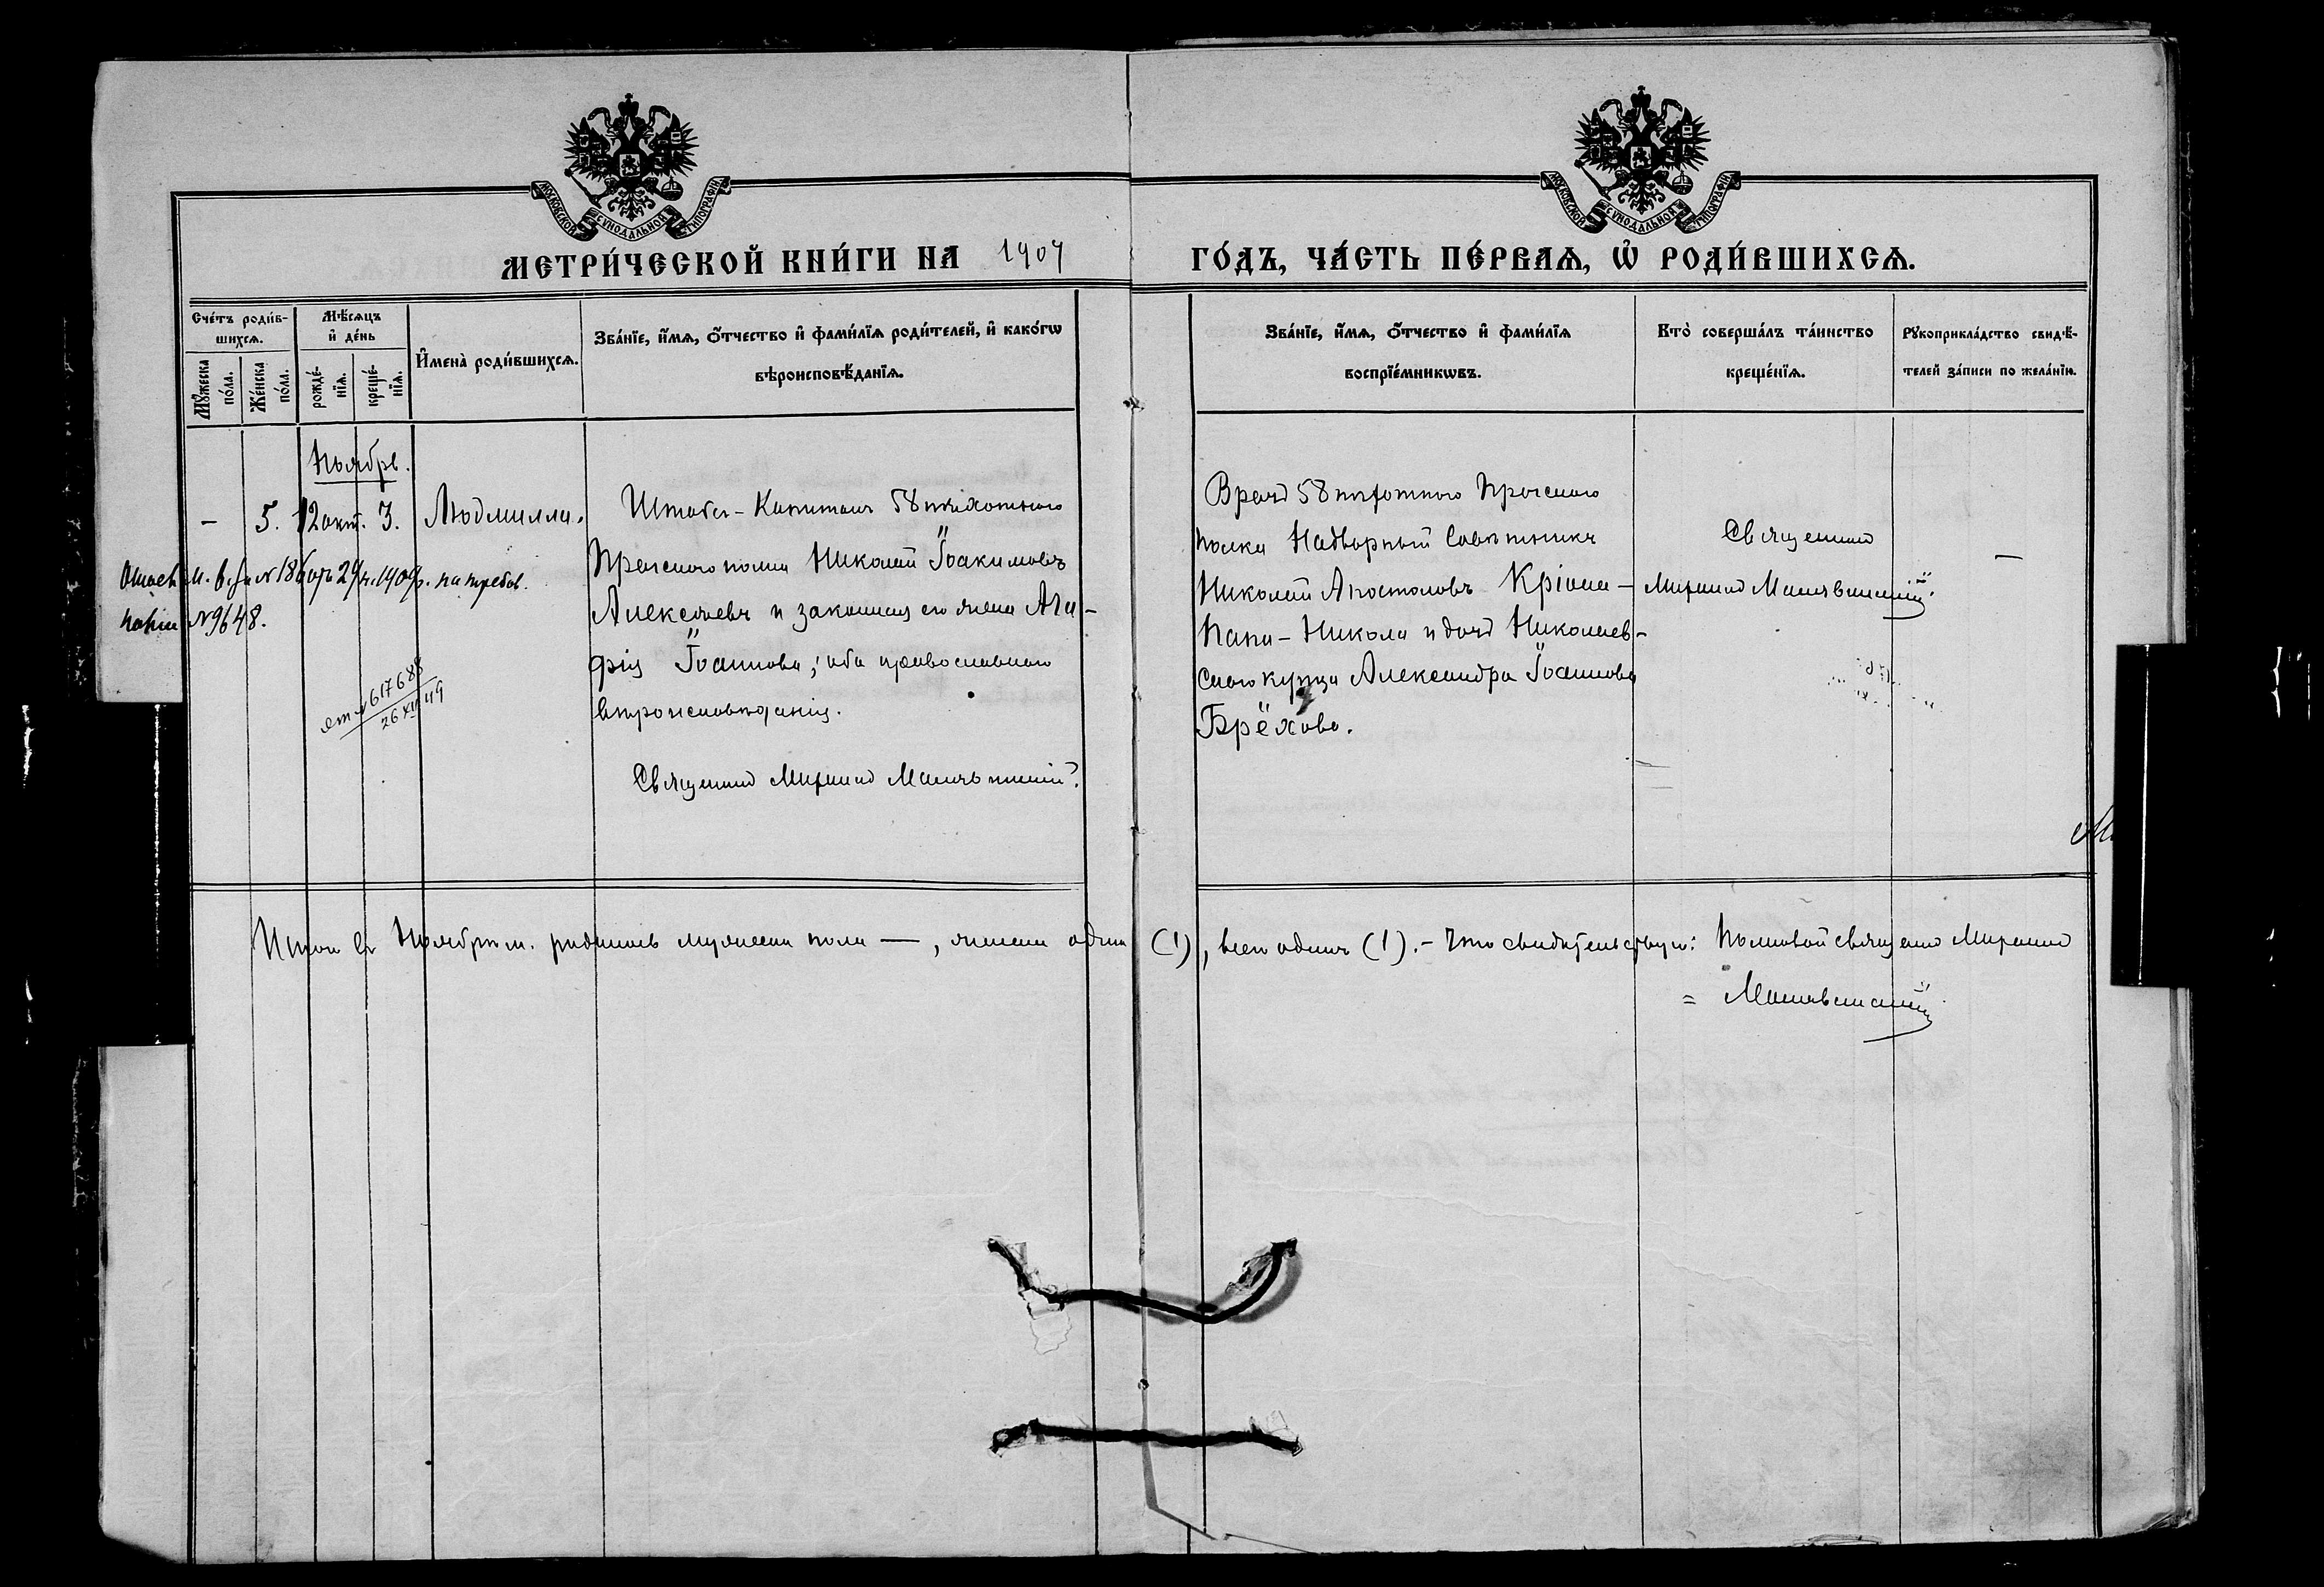 МОСКОВСКОЙ СѴНОДАЛЬНОЙ ТИПОГРАФІИ
МОСКОВСКОЙ СѴНОДАЛЬНОЙ ТИПОГРАФІИ
МЕТРИ́ЧЕСКОЙ КНИ́ГИ НА 1907 ГО́ДЪ, ЧА́СТЬ ПЕ́РВАѦ, Ѡ҆ РОДИ́ВШИХСѦ.
Сче́тъ роди́в-
шихсѧ.
Мꙋ́жеска по́ла.
Же́нска по́ла.
Мѣ́сѧцъ и҆ де́нь
рожде́-нїѧ.
креще́-нїѧ.
И҆мена̀ роди́вшихсѧ.
Зва́нїе, и҆́мѧ, ѻ҆́тчество и҆ фами́лїѧ роди́телей, и҆ како́гѡ
вѣроисповѣ́данїѧ.
Зва́нїе, и҆́мѧ, ѻ҆́тчество и҆ фами́лїѧ
воспрїе́мникѡвъ.
Кто̀ соверша́лъ та́инство
креще́нїѧ.
Рꙋкоприкла́дство свидѣ́-
телей за́писи по жела́нїю.
Ноябрь.
– 5. 12 окт. 3. Людмилла.
Штабсъ-Капитанъ 58 пѣхотнаго
Прагскаго полка Николай Іоакимовъ
Алексѣевъ и законная его жена Ага-
фія Іоаннова; оба православнаго
вѣроисповѣданія.
Священникъ Миронъ
Врачъ 58 пѣхотнаго Прагскаго
полка Надворный Совѣтникъ
Николай Апостоловъ Кріона-
Папа-Никола и дочь Николаев-
скаго купца Александра Іоаннова
Брёхова.
Священникъ
Миронъ
–
№ 186 29 1909 г. по требов.
№ 9648.
617688
26 XII 49
Итого въ Ноябрѣ м. родилось мужеска пола —, женска одна (1), всего одинъ (1). – Что свидѣтельствую: Полковой священникъ Миронъ